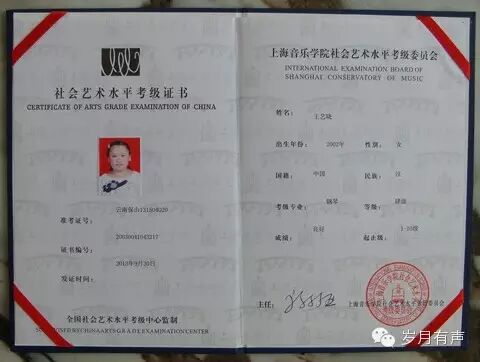 社会艺术水平考级证书
CERTIFICATE OF ARTS GRADE EXAMINATION OF CHINA
云南保山131804020
准考证号：
20030041043217
证书编号：
2013年9月20日
发证时间：
全国社会艺术水平考级中心监制
上海音乐学院社会艺术水平考级委员会
INTERNATIONAL EXAMINATION BOARD OF
SHANGHAI CONSERVATORY OF MUSIC
姓名：
出生年份： 2002年 性别： 女
国籍： 中国 民族： 汉
考级专业： 钢琴 等级：
成绩： 良好 起止级： 1-10级
主任： 上海音乐学院社会艺术水平考级委员会
岁月有声